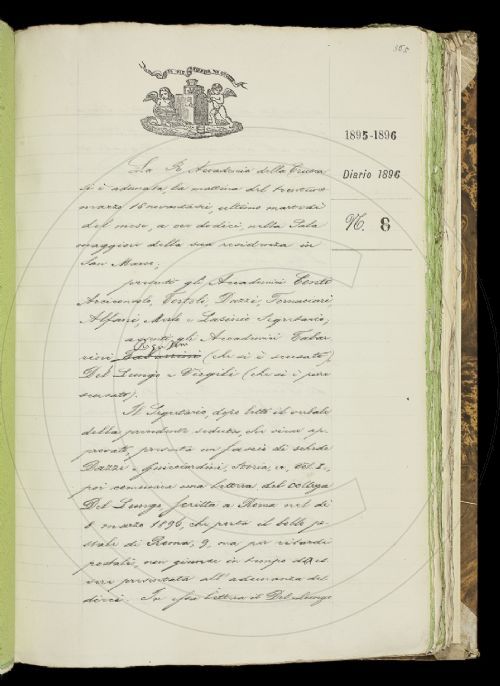 1895-1896
Diario 1896
N. 8
La R. Accademia della Crusca
si è adunata, la mattina del trentuno
marzo 18novantasei, ultimo martedì
del mese, a ore dodici, nella Sala
maggiore della sua residenza in
San Marco;
presenti gli Accademici Conti
Arciconsolo, Tortoli, Dazzi, Fornaciari,
Alfani, Mirle e Lasinio Segretario;
assenti gli Accademici Tabar
rini (che si è scusato),
Del Lungo e Virgili (che si è pure
scusato).
Il Segretario, dopo letto il verbale
della precedente seduta, che viene ap-
provato, presenta un fascio di schede
Dazzi e Guicciardini, Storia, vol. I.,
poi comunica una lettera del collega
Del Lungo, scritta a Roma nel dì
8 marzo 1896, che porta il bollo po-
stale di Roma, 9, ma per ritardi
postali, non giunse in tempo da es
sere presentata all'adunanza del
dieci. In essa lettera il Del Lungo